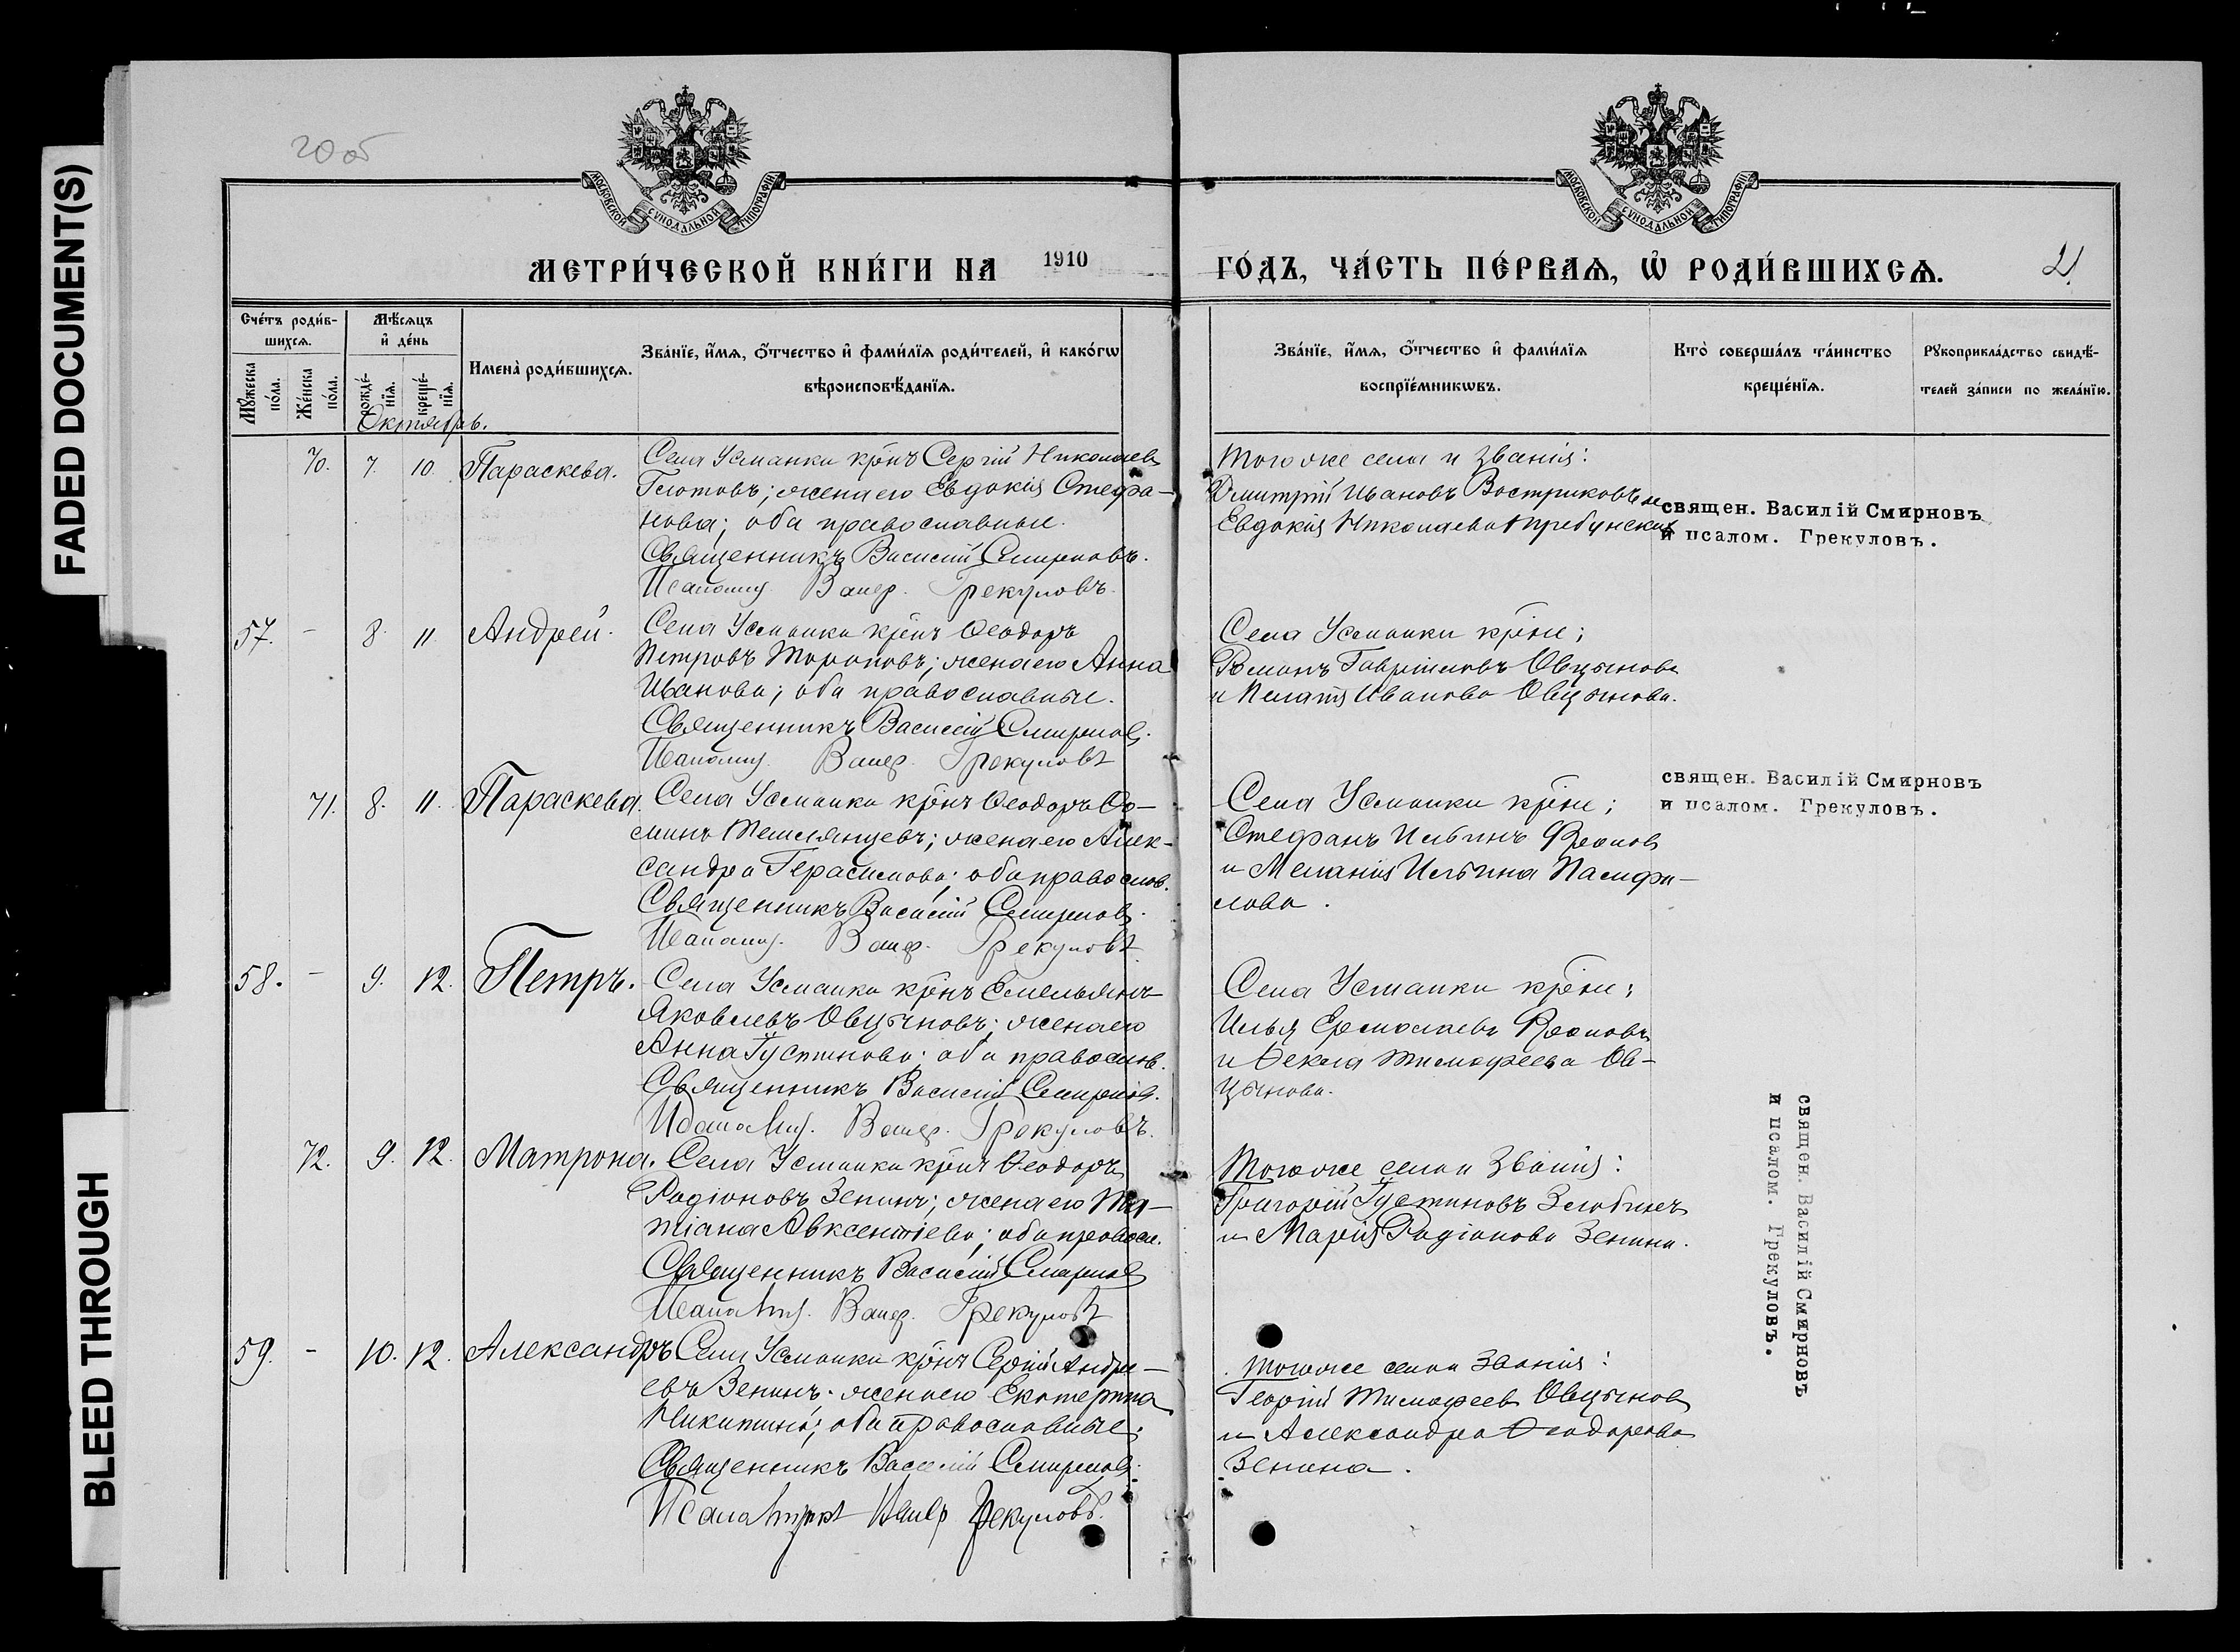 FADED DOCUMENT(S)
BLEED THROUGH
20 об
МОСКОВСКОЙ СѴНОДАЛЬНОЙ ТИПОГРАФІИ
МОСКОВСКОЙ СѴНОДАЛЬНОЙ ТИПОГРАФІИ
МЕТРИ́ЧЕСКОЙ КНИ́ГИ НА 1910 ГО́ДЪ, ЧА́СТЬ ПЕ́РВАѦ, Ѽ РОДИ́ВШИХСѦ.
21
Сче́тъ роди́в-
шихсѧ.
Мꙋ́жеска по́ла.
Же́нска по́ла.
Мѣ́сѧцъ и҆ де́нь
рожде́-нїѧ.
креще́-нїѧ.
Имена̀ роди́вшихсѧ.
Зва́нїе, и҆́мѧ, ѻ҆́тчество и҆ фами́лїѧ роди́телей, и҆ како́гѡ
вѣроисповѣ́данїѧ.
Зва́нїе, и҆́мѧ, ѻ҆́тчество и҆ фами́лїѧ
воспрїе́мникѡвъ.
Кто̀ соверша́лъ та́инство
креще́нїѧ.
Рꙋкоприкла́дство свидѣ́-
телей за́писи по жела́нїю.
Октябрь.
70. 7. 10. Параскева. Села Усманки крнъ Сергій Николаевъ
Глотовъ; жена его Евдокія Стефа-
нова; оба православные.
Священникъ Василій Смирновъ.
Псаломщ. Валер. Грекуловъ.
Того же села и званія:
Димитрій Ивановъ Востриковъ и
Евдокія Николаева
священ. Василій Смирновъ
и псалом. Грекуловъ.
57. - 8. 11. Андрей. Села Усманки крнъ Ѳеодоръ
Петровъ Тороповъ; жена его Анна
Иванова; оба православные.
Священникъ Василій Смирновъ.
Псаломщ. Валер. Грекуловъ
Села Усманки крне;
Романъ Гавріиловъ Овцыновъ
и Пелагія Иванова Овцынова.
71. 8. 11. Параскева. Села Усманки крнъ Ѳеодоръ Ѳо-
минъ жена его Алек-
сандра Герасимова; оба православ.
Священникъ Василій Смирновъ.
Псаломщ. Валер. Грекуловъ.
Села Усманки крне;
Стефанъ Ильинъ
и Меланія Ильина Памфи-
лова.
священ. Василій Смирновъ
и псалом. Грекуловъ.
58. - 9. 12. Петръ. Села Усманки крнъ Емельянъ
Яковлевъ Овцыновъ; жена его
Анна Густинова; оба православ.
Священникъ Василій Смирновъ.
Псаломщ. Валер. Грекуловъ.
Села Усманки крне;
Илья Ермолаевъ
и Ѳекла Тимофеева Ов-
цынова.
72. 9. 12. Матрона. Села Усманки крнъ Ѳеодоръ
Родіоновъ Зенинъ; жена его Та-
тіана Авксентіева; оба правосл.
Священникъ Василій Смирновъ
Псаломщ. Валер. Грекуловъ
Того же села и званія:
Григорій Густиновъ Злобинъ
и Марія Родіонова Зенина.
священ. Василій Смирновъ
и псалом. Грекуловъ.
59. - 10. 12. Александръ Села Усманки крнъ Сергій Андре-
евъ Зенинъ; жена его Екатерина
Никитина; оба православные.
Священникъ Василій Смирновъ.
Псаломщикъ Валер Грекуловъ.
Того же села и званія:
Георгій Тимофеевъ Овцыновъ
и Александра Ѳеодорова
Зенина.